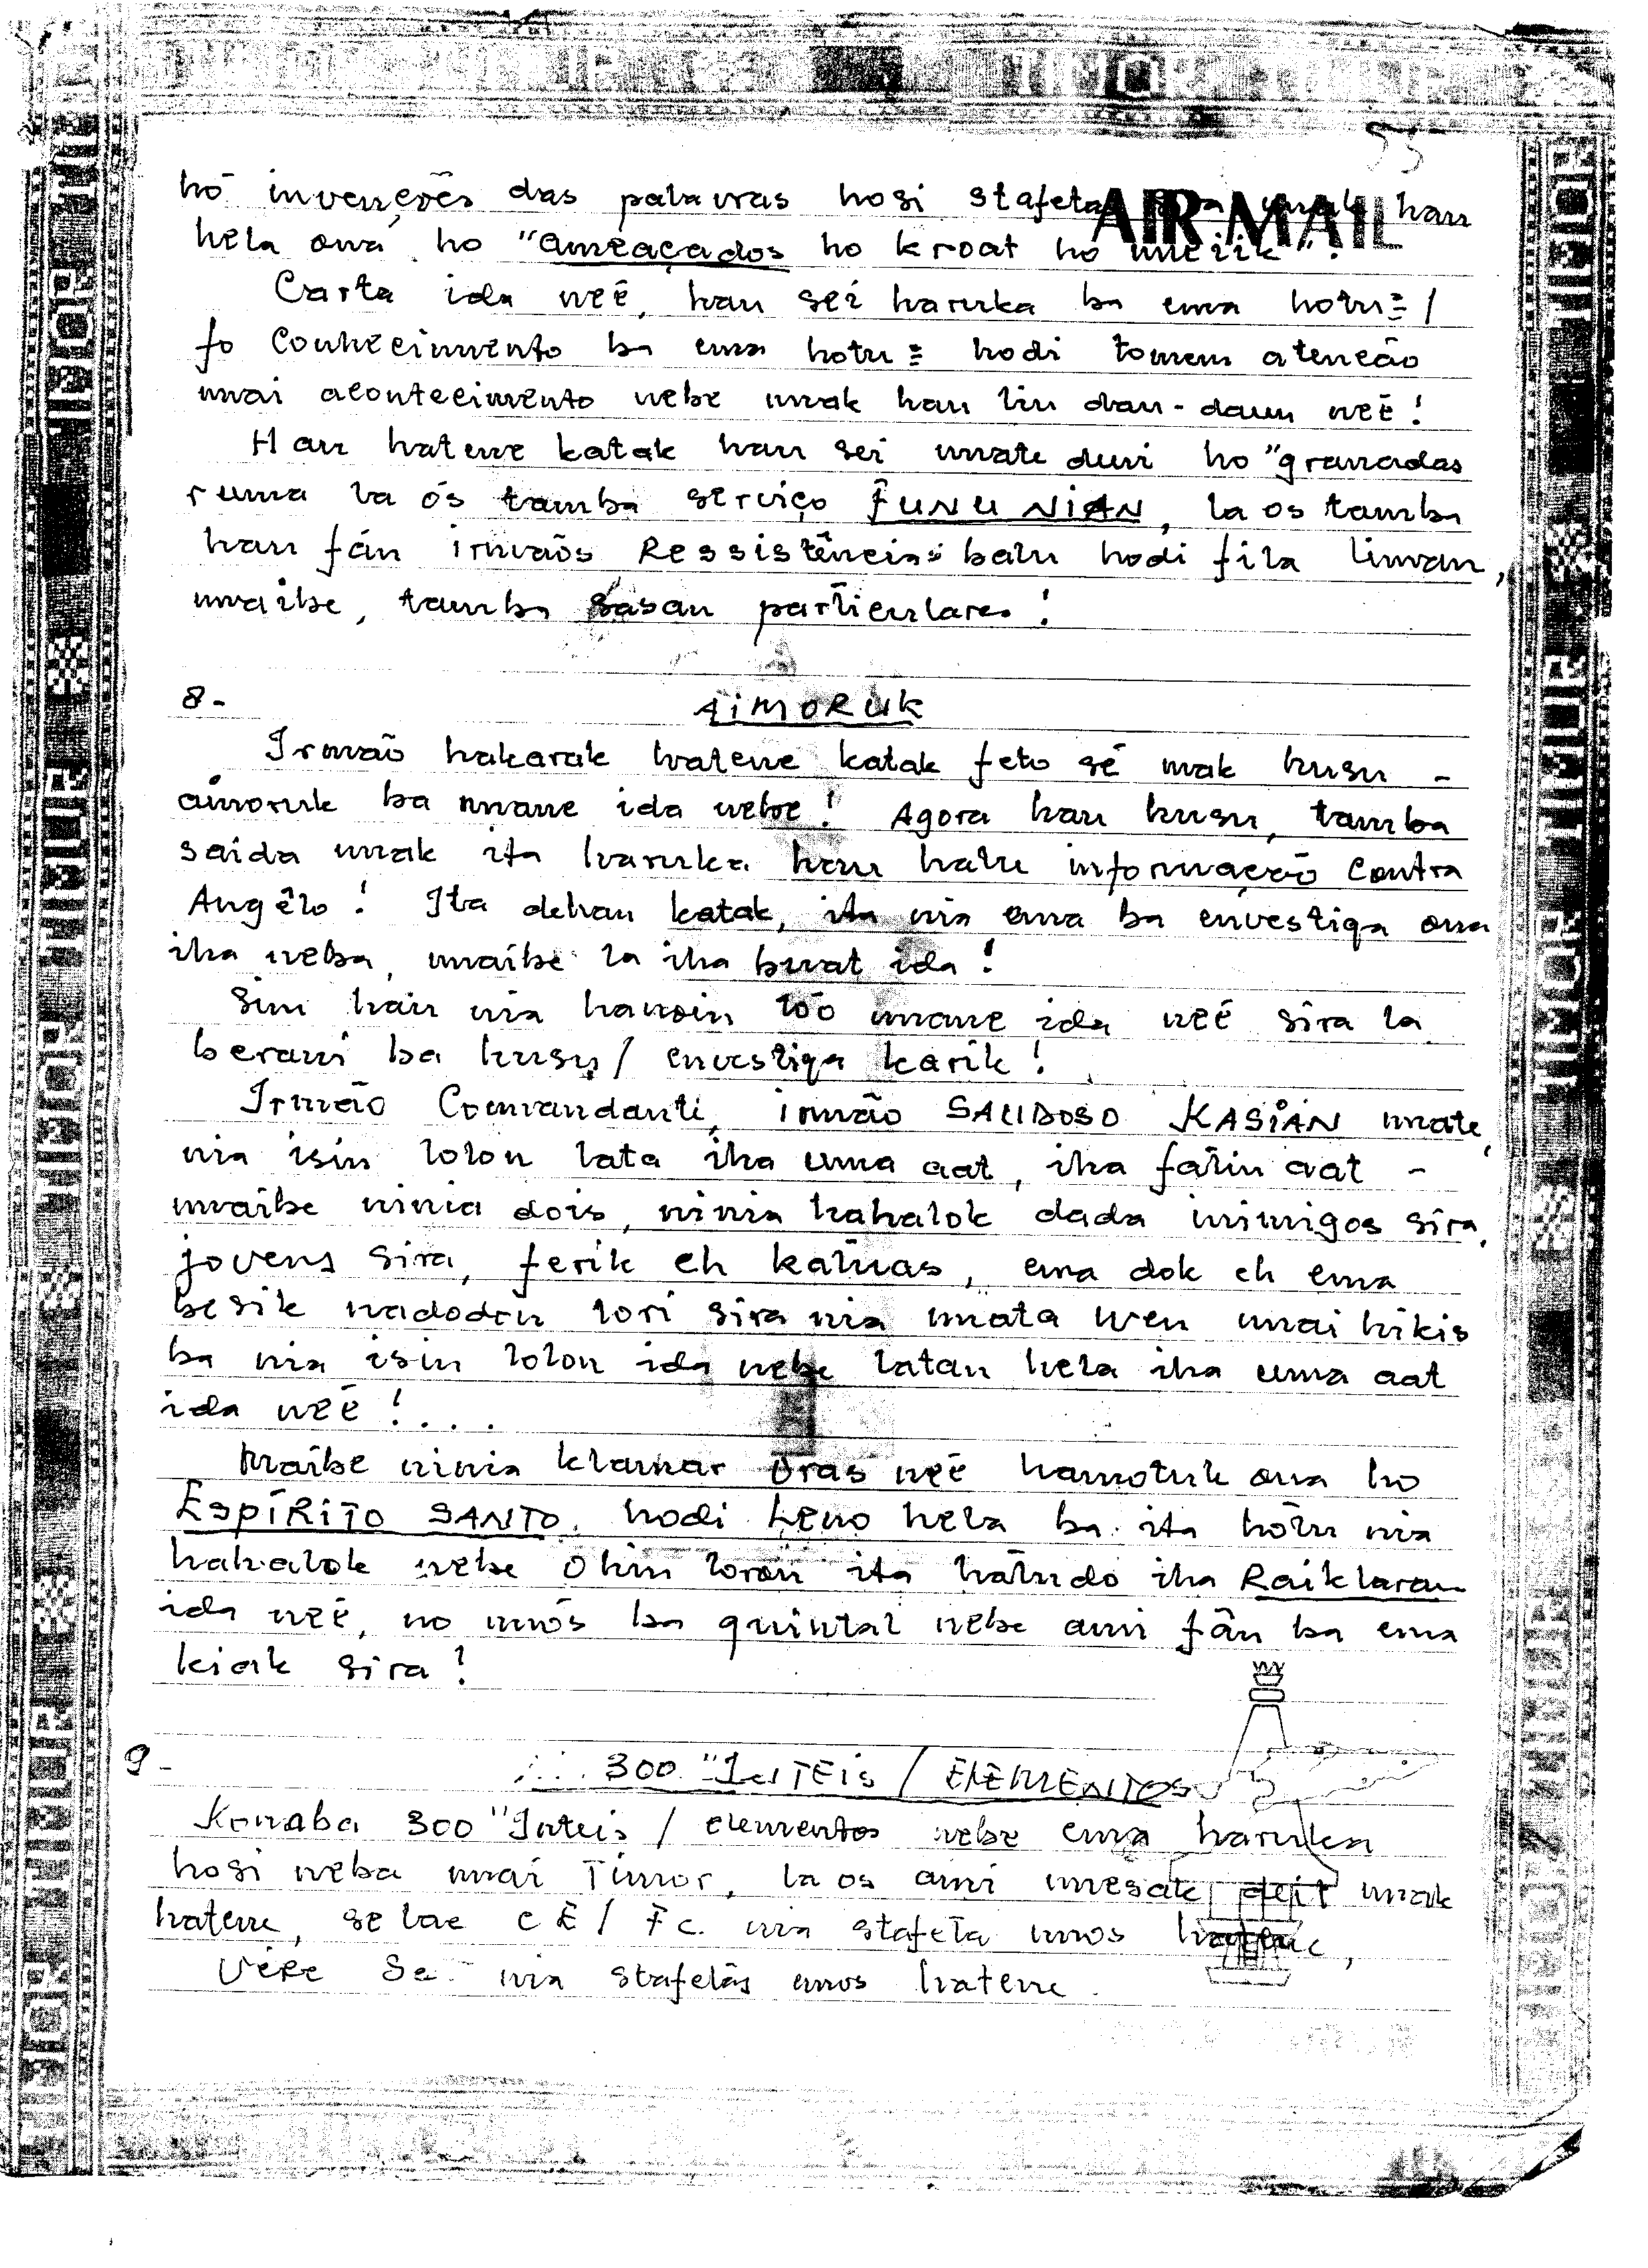 55
AIR MAIL
hó invenções das palavras hosi stafeta mak hau
hela ona ho "ameaçados ho kroat ho meiik".
Carta ida neé, hau sei haruka ba ema hotu= /
fo Conhecimento ba ema hotu= hodi tomem atencão
mai acontecimento nebe mak hau liu dau-daun neé!
Hau hatene katak hau sei mate duni ho "granadas
ruma la ós tamba serviço FUNU NIAN, la os tamba
hau fán irmaõs Ressistências balu hodi fila liman,
maibe, tamba sasan particulares!
8- AIMORUK
Irmaõ hakarak hatene katak feto sé mak husu -
aimoruk ba mane ida nebe! Agora hau husu, tamba
saida mak ita haruka hau halu informação Contra
Angêlo! Ita dehan katak, ita nia ema ba envestiga ona
iha neba, maibe la iha buat ida!
Sim hau nia hanoin tóo mane ida neé sira la
berani ba husu / envestiga karik!
Irmão Comandanti, irmão SAUDOSO KASIAN mate,
nia isin lolon lata iha uma aat, iha fatin aat -
maibe ninia dois, ninia hahalok dada inimigos sira,
jovens sira, ferik eh katuas, ema dok eh ema
besik nadodon lori sira nia mata wen mai hikis
ba nia isin lolon ida nebe latan hela iha uma aat
ida neé!....
Maibe ninia klamar oras neé hamotuk ona ho
ESPÍRITO SANTO, hodi Leno hela ba ita hôtu nia
hahalok nebe ohin loron ita hatudo iha Raiklaran
ida neé, no mós ba quintal nebe ami fân ba ema
kiak sira!
9- 300 "INTEIS / ELEMENTOS
Konaba 300 "Inteis / elementos nebe ema haruka
hosi neba mai Timor, la os ami mesak deit mak
hatene, se lae CE / FC. nia stafeta mos hatene,
Se nia stafetas mos hatene.